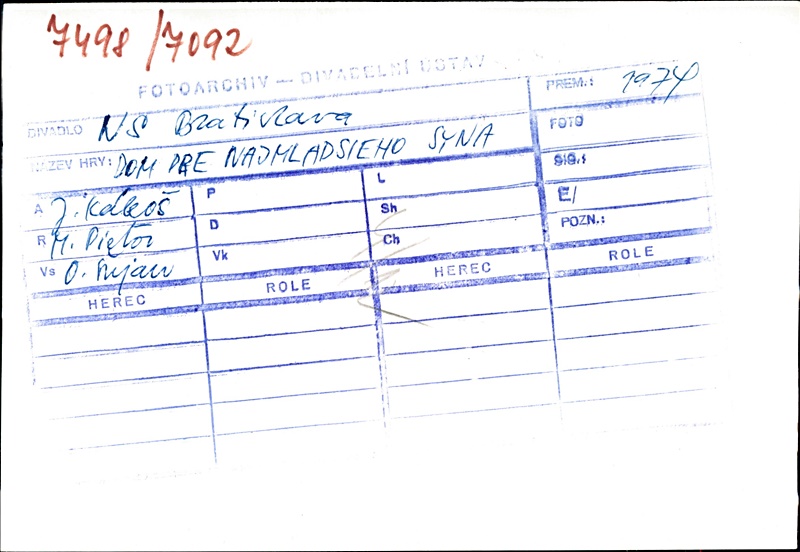 7498/7092
FOTOARCHIV — DIVADELNÍ ÚSTAV
DIVADLO NS Bratislava
PREM.: 1974
NÁZEV HRY: DOM PRE NAJMLADSIEHO SYNA
FOTO
SIG.:
A J. Kákoš
P
L
E/
R M. Pietor
D
Sh
POZN.:
Vs O. Šujan
Vk
Ch
HEREC ROLE HEREC ROLE